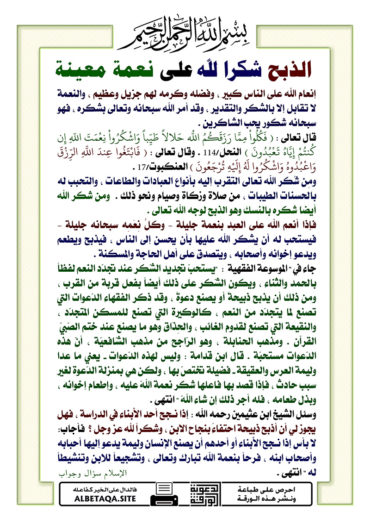 بسم الله الرحمن الرحيم
الذبح شكرا لله على نعمة معينة
إنعام الله على الناس كبير ، وفضله وكرمه لهم جزيل وعظيم ، والنعمة
لا تقابل إلا بالشكر والتقدير ، وقد أمر الله سبحانه وتعالى بشكره ، فهو
سبحانه شكور يحب الشاكرين .
قال تعالى : ( فَكُلُواْ مِمَّا رَزَقَكُمُ اللّهُ حَلالاً طَيِّباً وَاشْكُرُواْ نِعْمَتَ اللّهِ إِن
كُنتُمْ إِيَّاهُ تَعْبُدُونَ ) النحل/114 . وقال تعالى : ( فَابْتَغُوا عِندَ اللَّهِ الرِّزْقَ
وَاعْبُدُوهُ وَاشْكُرُوا لَهُ إِلَيْهِ تُرْجَعُونَ ) العنكبوت/17 .
ومن شكر الله تعالى التقرب إليه بأنواع العبادات والطاعات ، والتحبب له
بالحسنات الطيبات ، من صلاة وزكاة وصيام ونحو ذلك . ومن شكر الله
أيضا شكره بالنسك وهو الذبح لوجه الله تعالى .
فإذا أنعم الله على العبد بنعمة جليلة – وكل نعمه سبحانه جليلة –
فيستحب له أن يشكر الله عليها بأن يحسن إلى الناس ، فيذبح ويطعم
ويدعو إخوانه وأصحابه ، ويتصدق على أهل الحاجة والمسكنة .
جاء في "الموسوعة الفقهية : "يستحبّ تجديد الشّكر عند تجدّد النّعم لفظاً
بالحمد والثّناء ، ويكون الشّكر على ذلك أيضاً بفعل قربة من القرب ،
ومن ذلك أن يذبح ذبيحة أو يصنع دعوة ، وقد ذكر الفقهاء الدّعوات التي
تصنع لما يتجدّد من النعم ، كالوكيرة التي تصنع للمسكن المتجدّد ،
والنقيعة التي تصنع لقدوم الغائب ، والحذاق وهو ما يصنع عند ختم الصّبيّ
القرآن . ومذهب الحنابلة ، وهو الرّاجح من مذهب الشّافعيّة ، أن هذه
الدّعوات مستحبّة . قال ابن قدامة : وليس لهذه الدّعوات ـ يعني ما عدا
وليمة العرس والعقيقة ـ فضيلة تختصّ بها ، ولكن هي بمنزلة الدّعوة لغير
سبب حادث ، فإذا قصد بها فاعلها شكر نعمة اللّه عليه ، وإطعام إخوانه ،
وبذل طعامه ، فله أجر ذلك إن شاء اللّه" انتهى .
وسئل الشيخ ابن عثيمين رحمه الله : إذا نجح أحد الأبناء في الدراسة ، فهل
يجوز لي أن أذبح ذبيحة احتفاءً بنجاح الابن ، وشكراً لله عز وجل ؟ فأجاب:
لا بأس إذا نجح الأبناء أو أحدهم أن يصنع الإنسان وليمة يدعو إليها أحبابه
وأصحاب ابنه ، فرحاً بنعمة الله تبارك وتعالى ، وتشجيعاً للابن وتنشيطاً
له" انتهى .
الإسلام سؤال وجواب
احرص على طباعة
ونشر هذه الورقة
فالدال على الخير كفاعله
ALBETAQA.SITE